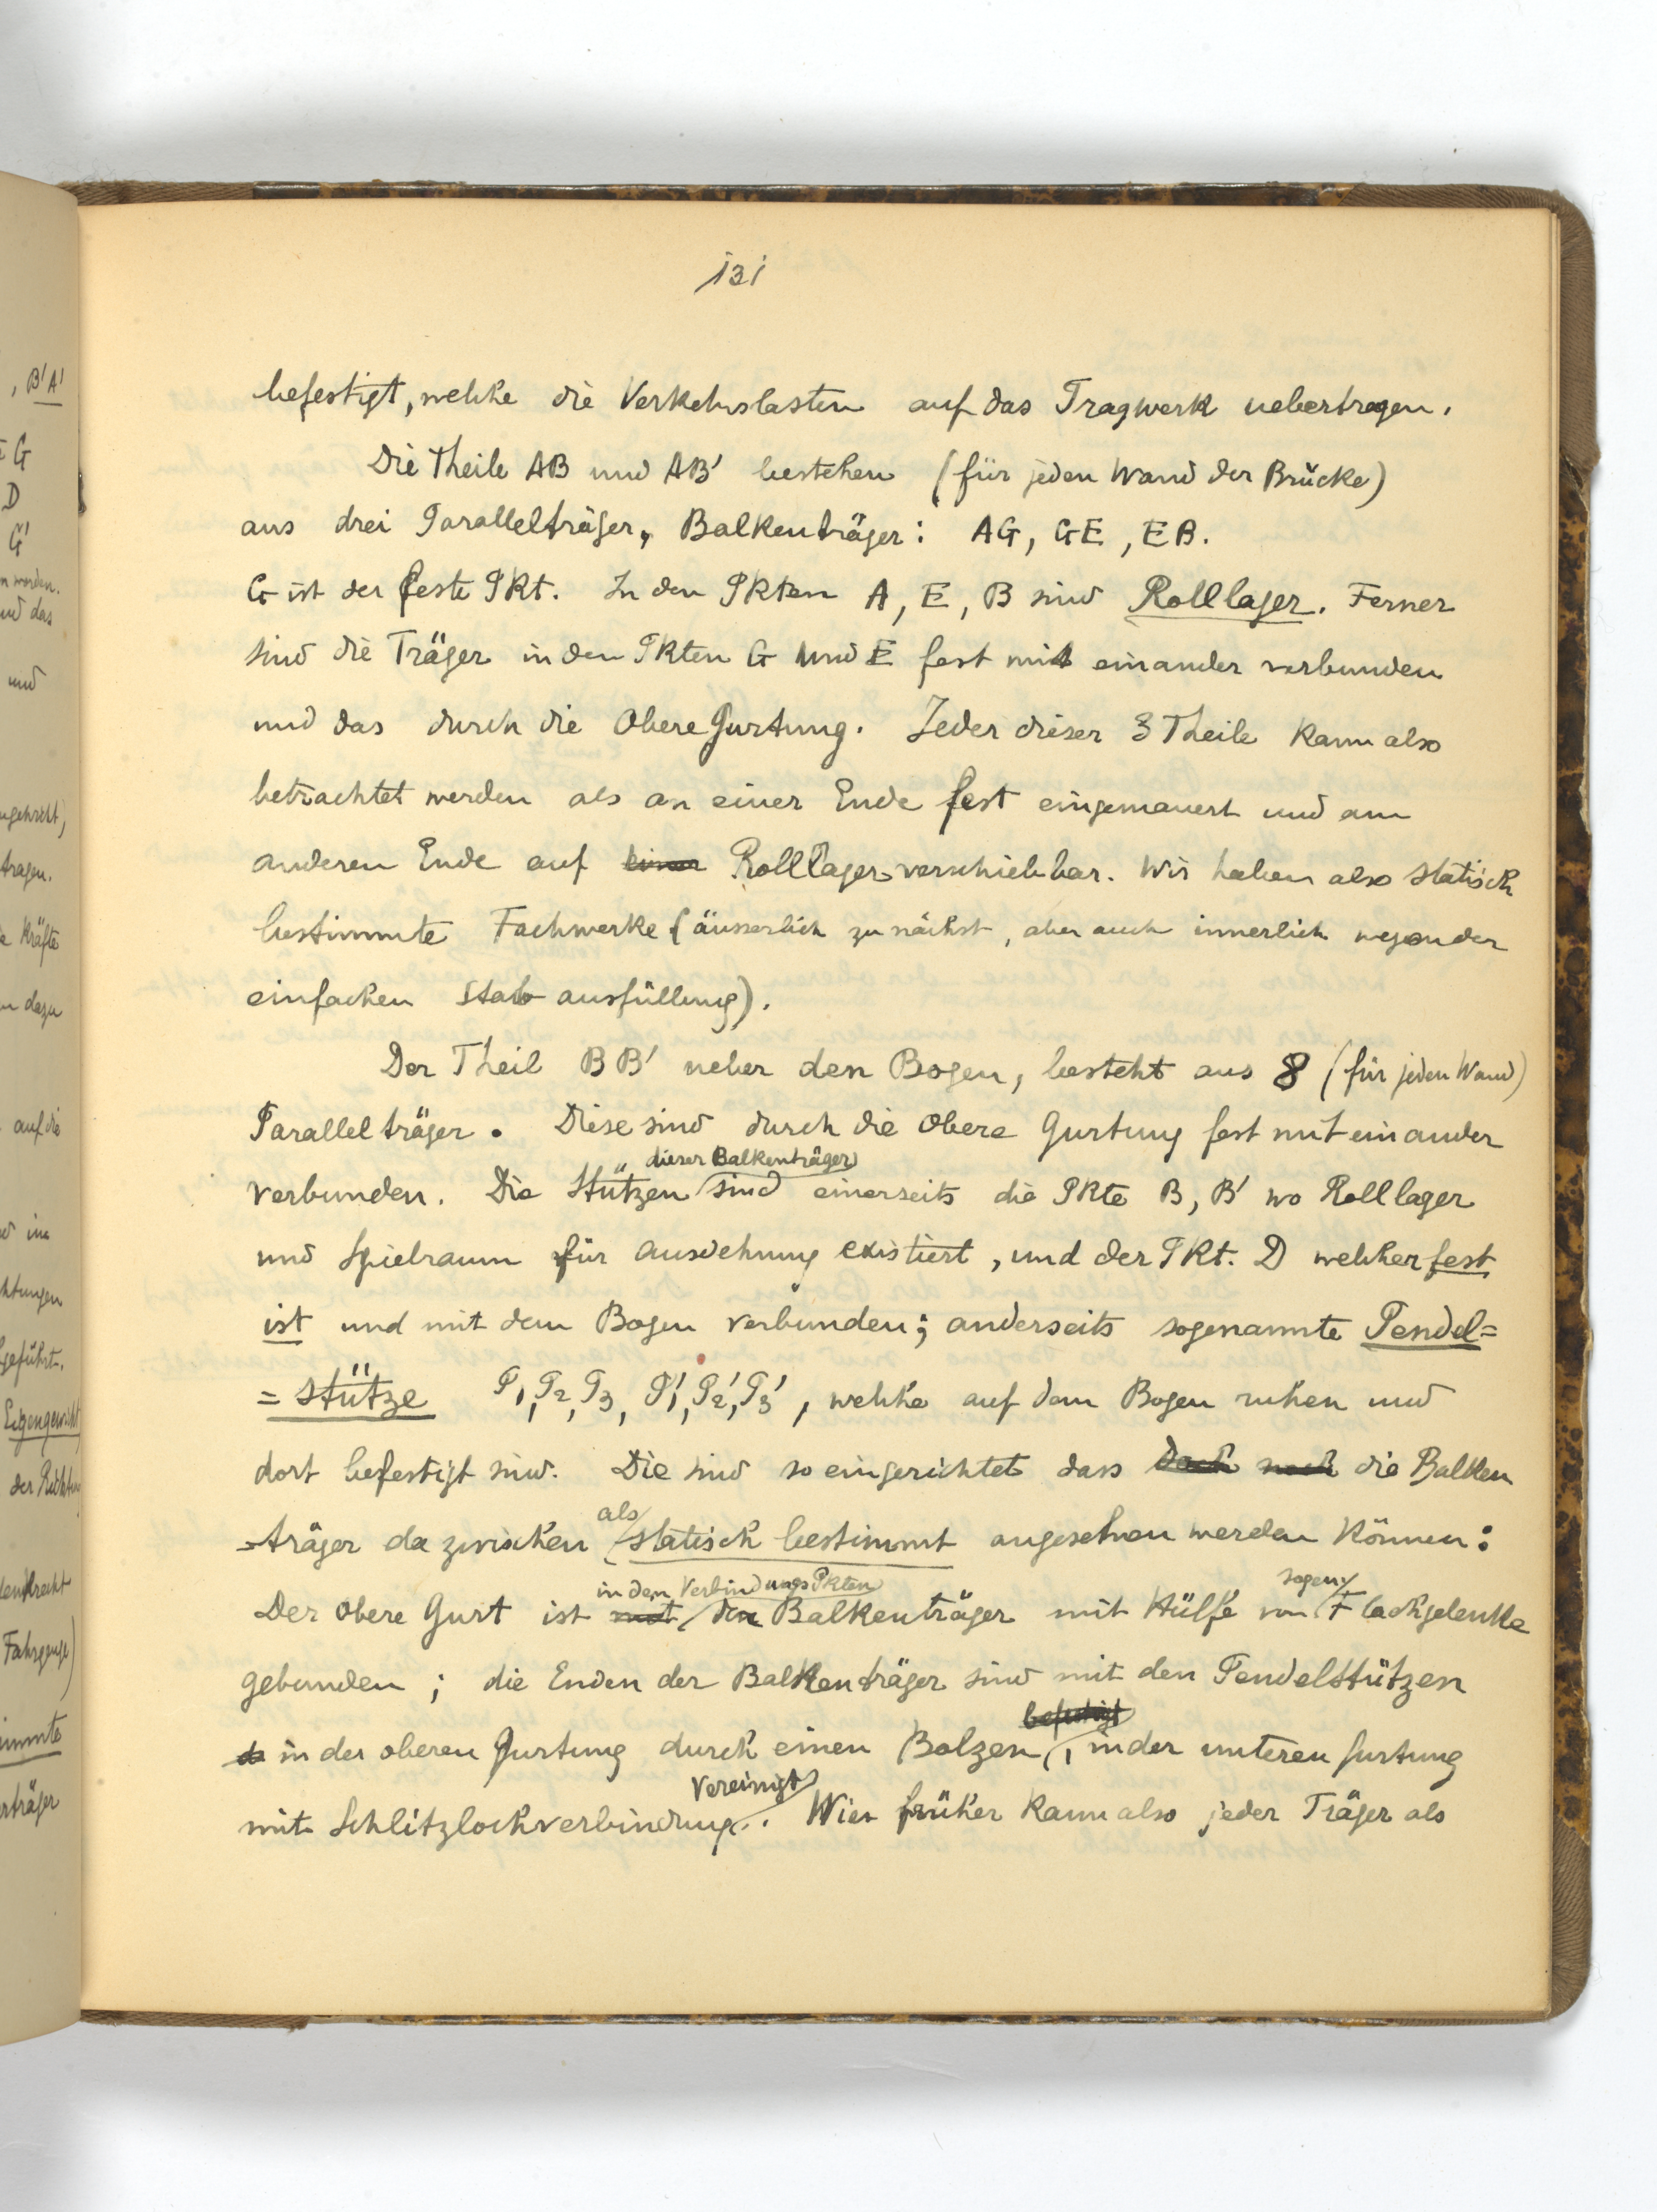 131
, B'A'
G
D
G'
n worden.
und das
und
tragen.
Kräfte
dazu
auf die
im
htungen
geführt.
Eigengewicht
der Richtung
Fahrzeuge)
immte
erträger
befestigt, welche die Verkehrslasten auf das Tragwerk uebertragen.
Die Theile AB und AB' bestehen (für jeden Wand der Brücke)
aus drei Parallelträger, Balkenträger: AG, GE, EB.
G ist der feste Pkt. In den Pkten A, E, B sind Rolllager. Ferner
sind die Träger in den Pkten G und E fest mit einander verbunden
und das durch die Obere Gurtung. Jeder dieser 3 Theile kann also
betrachtet werden als an einer Ende fest eingemauert und am
anderen Ende auf einer Rolllager verschiebbar. Wir haben also statisch
bestimmte Fachwerke (äusserlich zunächst, aber auch innerlich wegen der
einfachen Stab ausfüllung).
Der Theil BB' ueber den Bogen, besteht aus 8 (für jeden Wand)
Parallelträger. Diese sind durch die Obere Gurtung fest mit einander
dieser Balkenträger
verbunden. Die Stützen sind einerseits die Pkte B, B' wo Rolllager
und Spielraum für Ausdehnung existiert, und der Pkt. D welcher fest
ist und mit dem Bogen verbunden; anderseits sogenannte Pendel=
=stütze P1, P2, P3, P1', P2', P3', welche auf dem Bogen ruhen und
dort befestigt sind. Die sind so eingerichtet dass doch noch die Balken
als
=träger dazwischen statisch bestimmt angesehen werden können:
in den VerbindungsPkten sogen.
Der Obere Gurt ist mit den Balkenträger mit Hülfe von Flachgelenke
gebunden; die Enden der Balkenträger sind mit den Pendelstützen
befestigt
in der oberen Gurtung durch einen Bolzen, in der unteren Gurtung
vereinigt
mit Schlitzlochverbindung. Wie früher kann also jeder Träger als